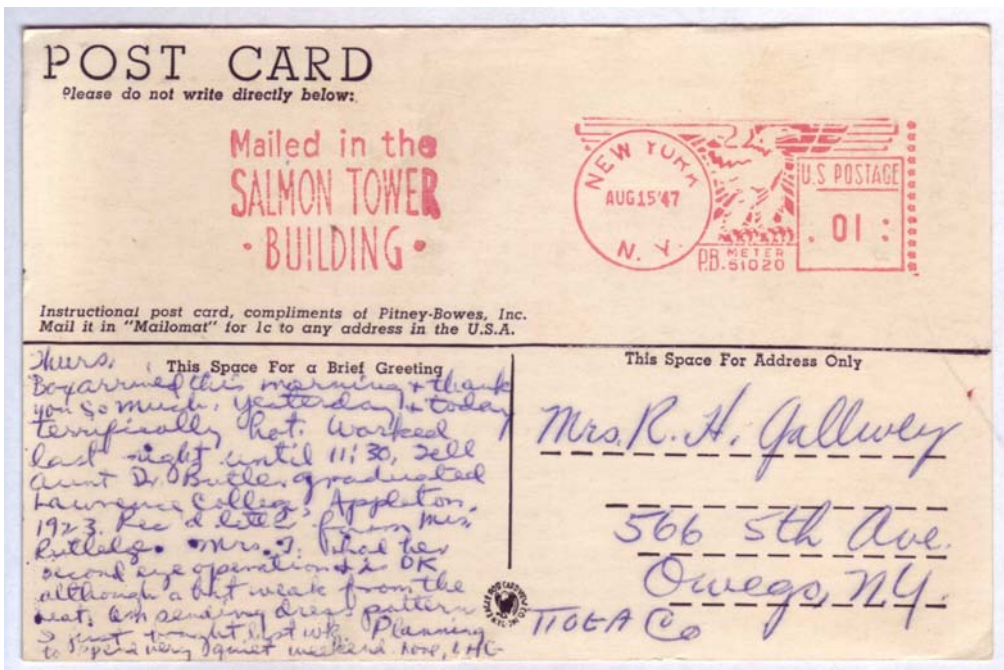 POST CARD
Please do not write directly below:
Mailed in the
SALMON TOWER
• BUILDING •
NEW YORK
AUG 15 '47
N. Y.
U.S POSTAGE
. 01 :
P.B. METER
51020
Instructional post card, compliments of Pitney-Bowes, Inc.
Mail it in "Mailomat" for 1c to any address in the U.S.A.
This Space For a Brief Greeting
Thurs.
Box arrived this morning & thank
you so much. Yesterday & today
terrifically hot. Worked
last night until 11:30. Tell
Aunt Dr. Butler graduated
Lawrence College, Appleton,
1923. Rec'd letter from Mrs.
Rutledge. Mrs. J. had her
second eye operation & is OK
although a bit weak from the
heat. Am sending dress pattern
I just bought last wk. Planning
to spend very quiet weekend. Love,
This Space For Address Only
Mrs. R. H. Gallwey
566 5th Ave.
Owego, N.Y.
TIOGA Co